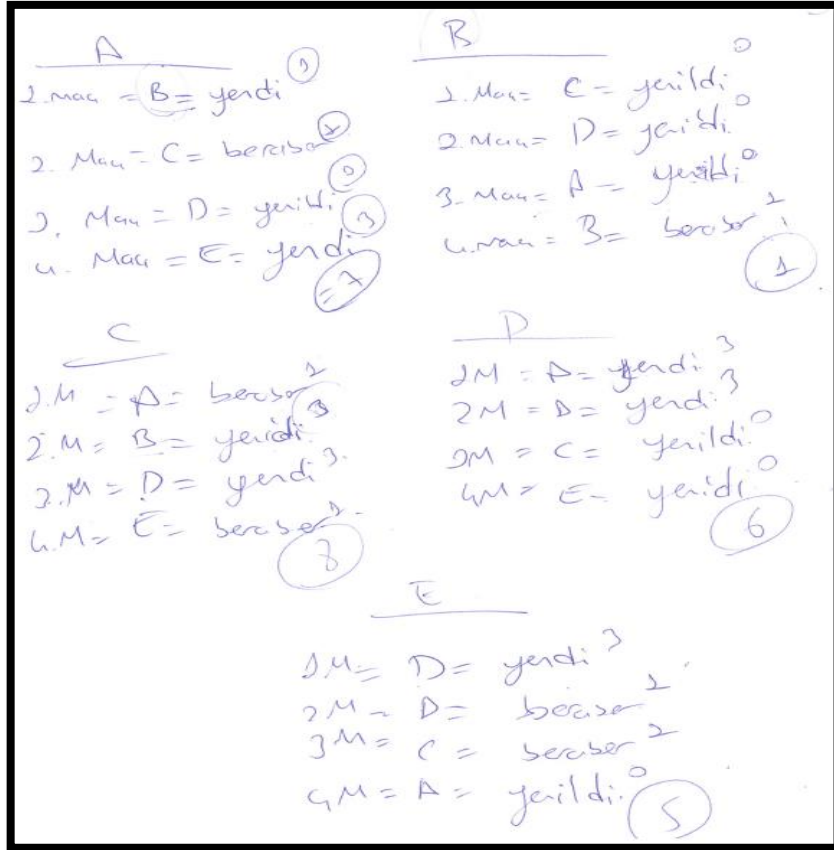 A
1. maç = B = yendi 3
2. Maç = C = beraber 1
3. Maç = D = yenildi 0
4. Maç = E = yendi 3
= 7
B
1. Maç = C = yenildi 0
2. Maç = D = yenildi 0
3. Maç = A = yenildi 0
4. maç = B = beraber 1
1
C
1.M = A = beraber 1
2.M = B = yendi 3
3.M = D = yendi 3
4.M = E = beraber 1
8
D
1M = A = yendi 3
2M = B = yendi 3
3M = C = yenildi 0
4M = E = yenidi 0
6
E
1M = D = yendi 3
2M = B = beraber 1
3M = C = beraber 1
4M = A = yenildi 0
5